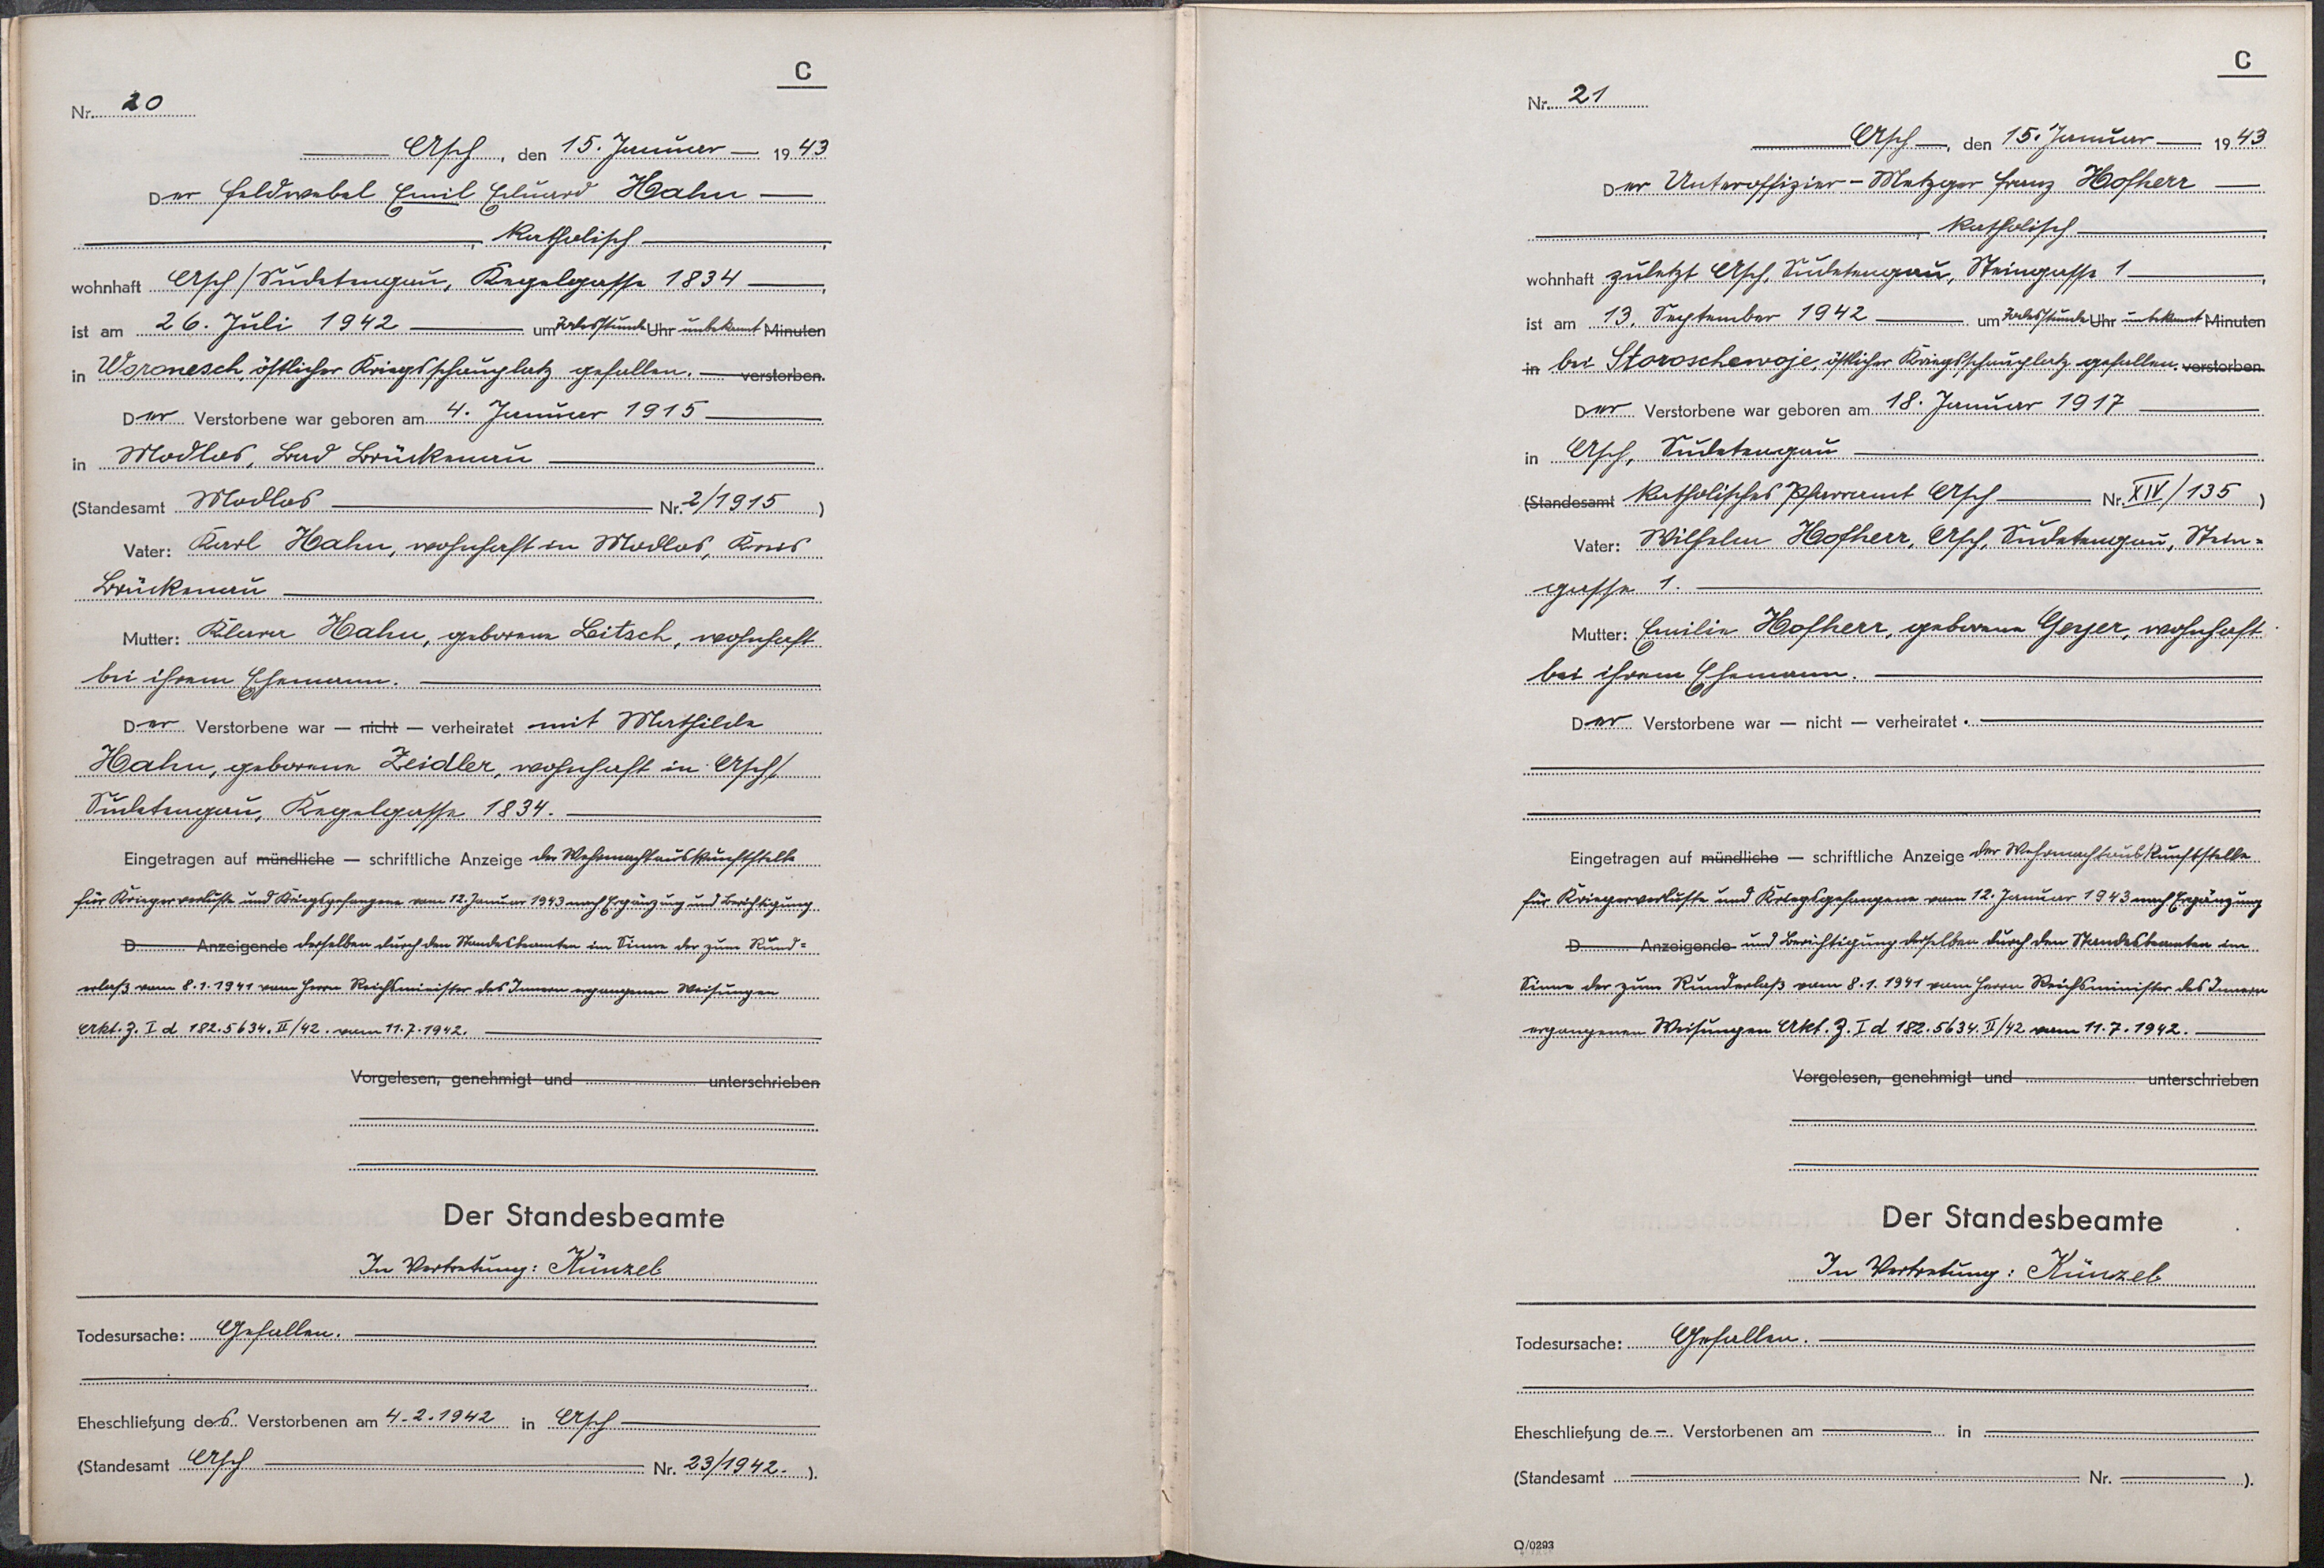 C
Nr. 20
Asch, den 15. Januar 1943
Der Feldwebel Emil Eduard Hahn
, katholisch
wohnhaft Asch/Sudetengau, Kegelgasse 1834,
ist am 26. Juli 1942 um Todesstunde Uhr unbekannt Minuten
in Woronesch, östlicher Kriegsschauplatz gefallen. verstorben.
Der Verstorbene war geboren am 4. Januar 1915
in Modlos, Bad Brückenau
(Standesamt Modlos Nr. 2/1915)
Vater: Karl Hahn, wohnhaft in Modlos, Kreis
Brückenau
Mutter: Klara Hahn, geborene Leitsch, wohnhaft
bei ihrem Ehemann.
Der Verstorbene war — nicht — verheiratet mit Mathilde
Hahn, geborene Zeidler, wohnhaft in Asch/
Sudetengau, Kegelgasse 1834.
Eingetragen auf mündliche — schriftliche Anzeige der Wehrmachtauskunftstelle
für Kriegerverluste und Kriegsgefangene vom 12. Januar 1943 nach Ergänzung und Berichtigung
D Anzeigende derselben durch den Standesbeamten im Sinne der zum Rund=
erlaß vom 8.1.1941 vom Herrn Reichsminister des Innern ergangenen Weisungen
Akt. Z. I d 182.5634.II/42. vom 11.7.1942.
Vorgelesen, genehmigt und unterschrieben
Der Standesbeamte
In Vertretung: Künzel
Todesursache: Gefallen.
Eheschließung des Verstorbenen am 4.2.1942 in Asch
(Standesamt Asch Nr. 23/1942.).
C
Nr. 21
Asch, den 15. Januar 1943
Der Unteroffizier - Metzger Franz Hofherr
, katholisch,
wohnhaft zuletzt Asch, Sudetengau, Steingasse 1,
ist am 13. September 1942 um Todesstunde Uhr unbekannt Minuten
in bei Storoschewoje, östlicher Kriegsschauplatz gefallen. verstorben.
Der Verstorbene war geboren am 18. Januar 1917
in Asch, Sudetengau
(Standesamt katholisches Pfarramt Asch Nr. XIV/135)
Vater: Wilhelm Hofherr, Asch, Sudetengau, Stein=
gasse 1.
Mutter: Emilie Hofherr, geborene Geyer, wohnhaft
bei ihrem Ehemann.
Der Verstorbene war — nicht — verheiratet.
Eingetragen auf mündliche — schriftliche Anzeige der Wehrmachtauskunftstelle
für Kriegerverluste und Kriegsgefangene vom 12. Januar 1943 nach Ergänzung
D Anzeigende und Berichtigung derselben durch den Standesbeamten im
Sinne der zum Runderlaß vom 8.1.1941 vom Herrn Reichsminister des Innern
ergangenen Weisungen Akt. Z. I d 182.5634.II/42 vom 11.7.1942.
Vorgelesen, genehmigt und unterschrieben
Der Standesbeamte
In Vertretung: Künzel
Todesursache: Gefallen.
Eheschließung de - Verstorbenen am in
(Standesamt Nr. ).
O/0293